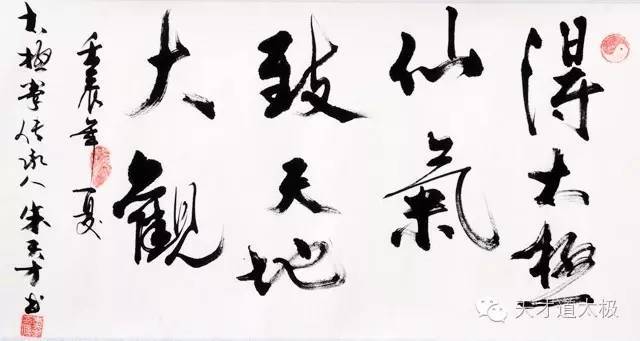 得太極
仙氣
致天地
大觀
壬辰年夏
太極拳传承人朱天才书
天才道太极